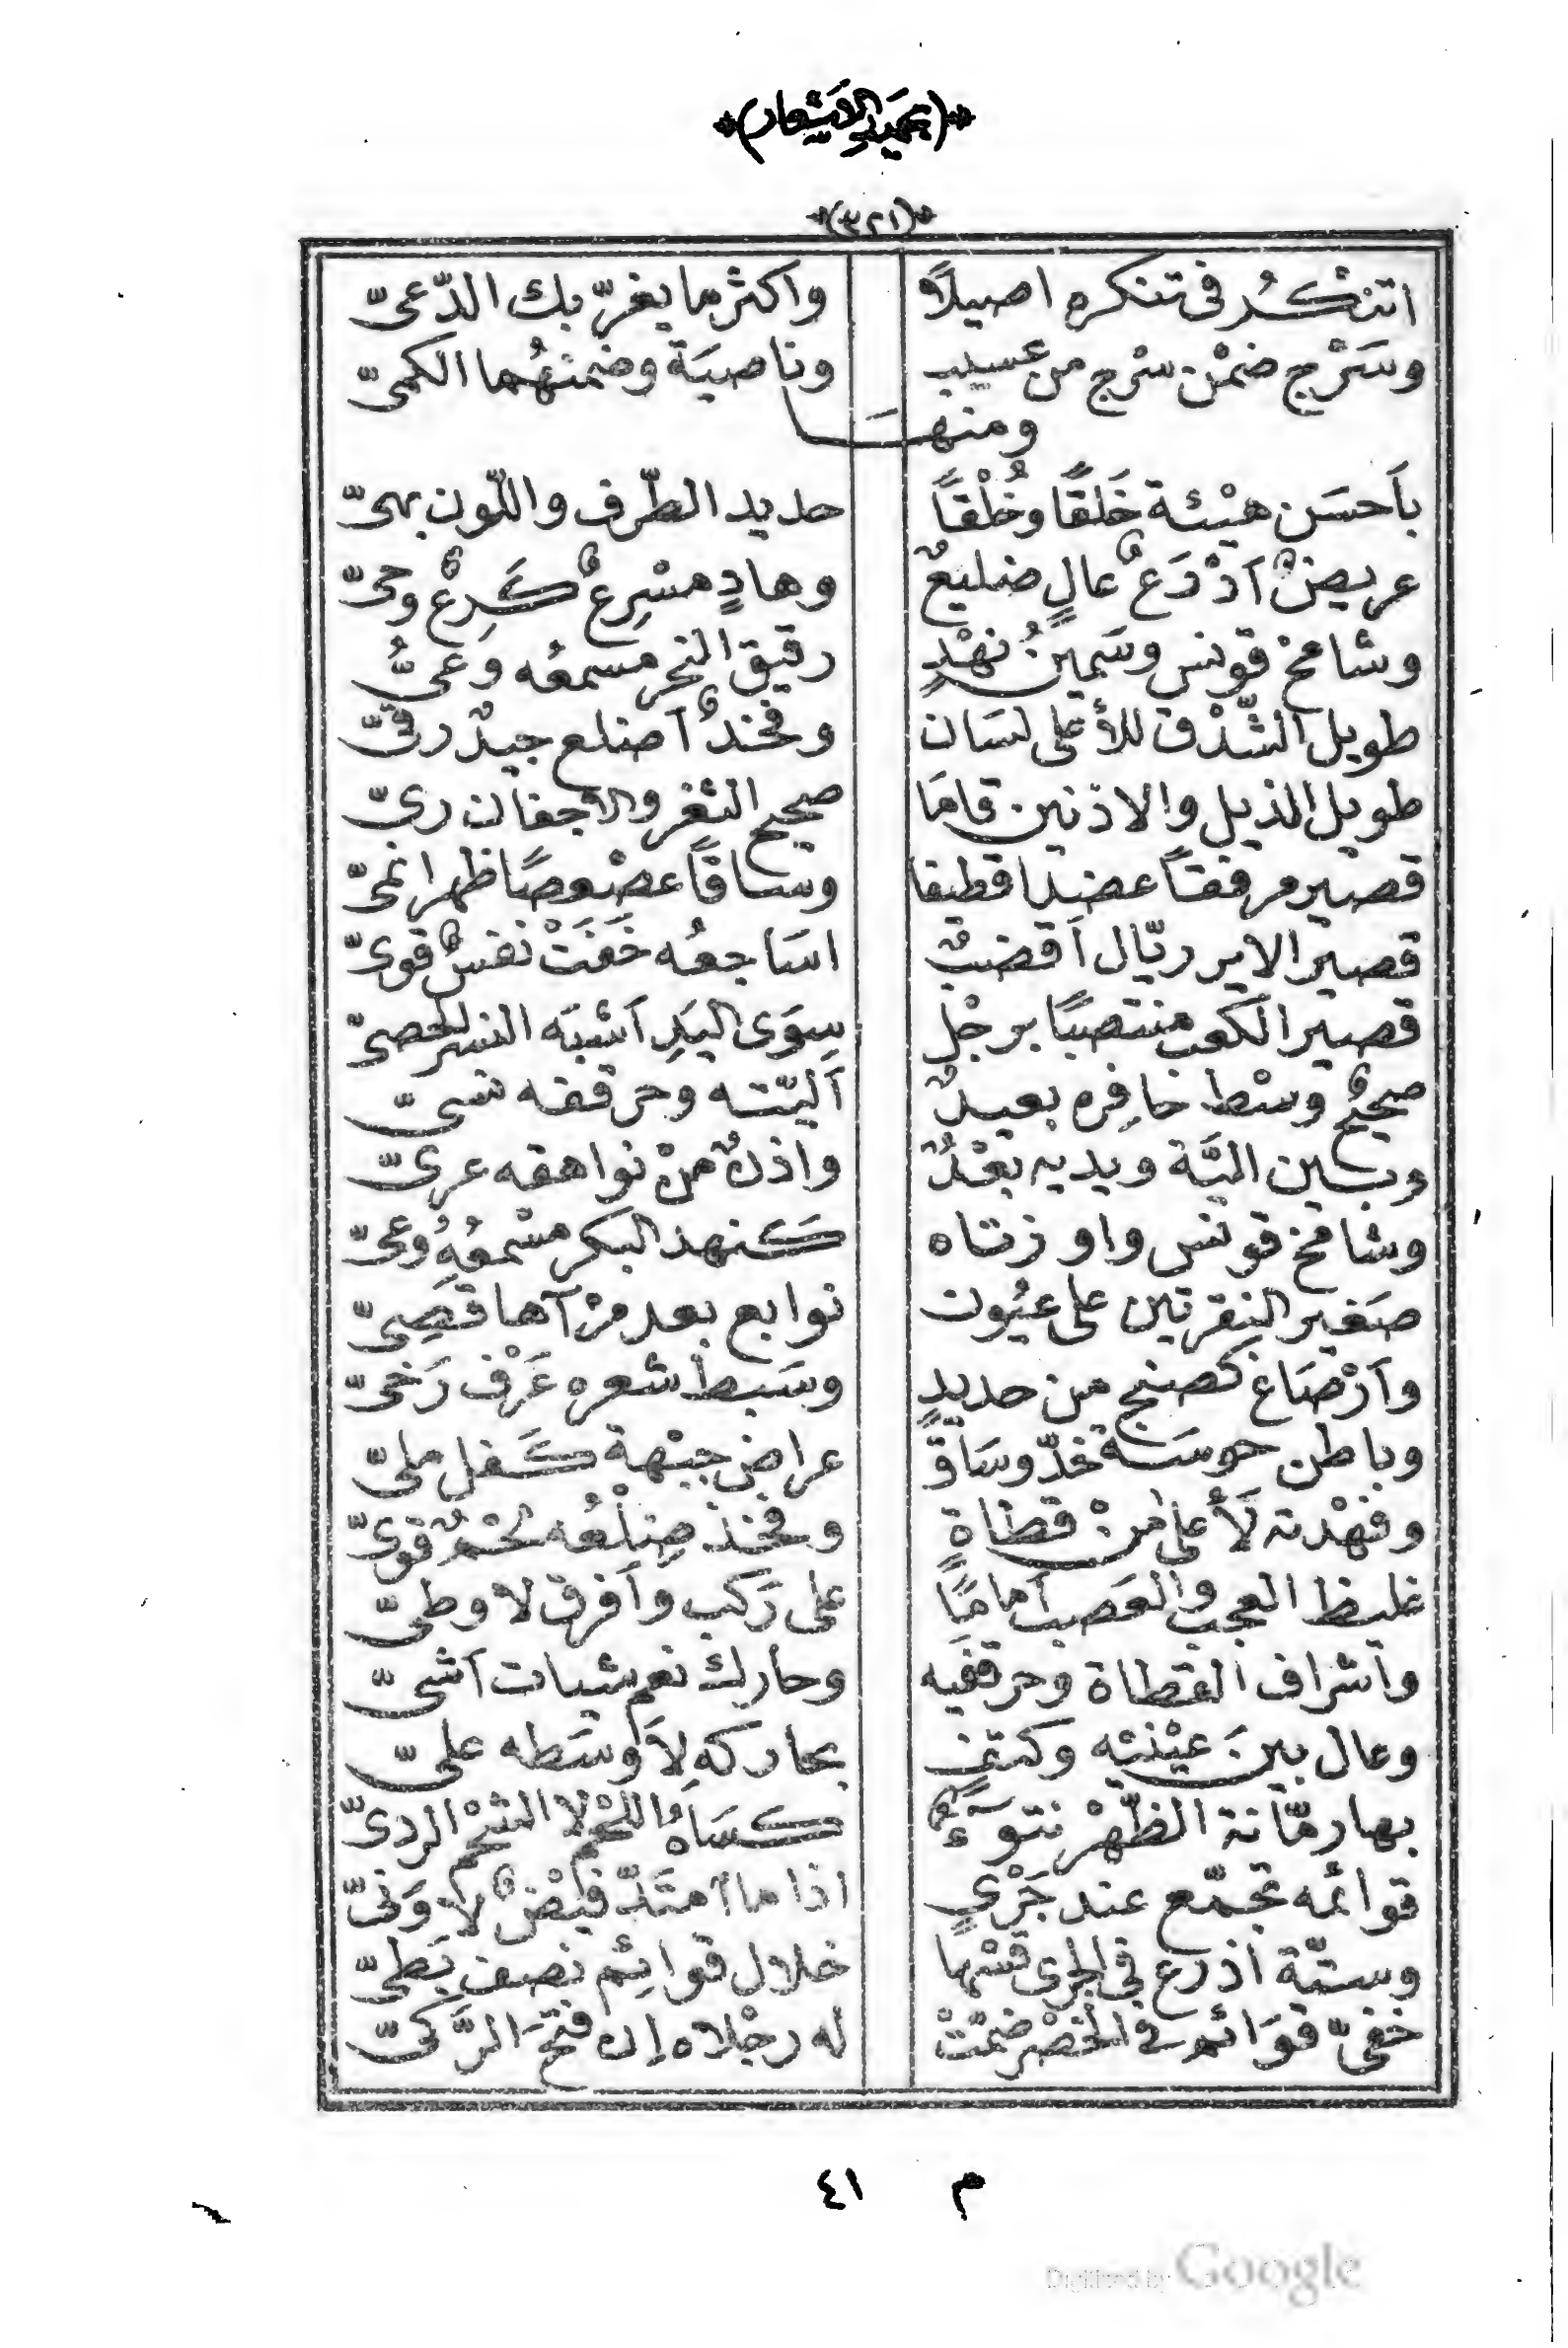 (تحميد الاشعار)
(٣٢١)
اتنكُر فى تنكره اصيلاً واكثر ما يغرّ بك الدّعىّ
وسَرْج ضمْن سرْج من عسيب وناصيَة وضمنهُما الكمىّ
ومنهَا
بأَحسَن هيْئة خَلقًا وخُلْقاً حديد الطّرف واللّون بهىّ
عريضٌ آذْرَعٌ عالٍ ضليعٌ وهادٍ مسْرِعٌ كَرِعٌ وحىّ
وشامخ قونس وسَمينُ نهْدٍ رقيق النحر مسمعُه وعىُّ
طويل الشّدْق للأعلى لسَان وفخذٌ آضلع جيدٌ رقىّ
طويل الذيل والاذنين قامَا صحيح الثغر والاجفان رىّ
قصير مرفقاً عضدا قطيفا وساقاً عصْعصًا ظهرا نمىّ
قصير الاير ريّال آقضبٌ اسَاجعُه خَفَتْ نفسٌ قوىّ
قصير الكعب منتصبًا برجْل سِوَى اليَدِ آشبَه النسر الحصىّ
صحيحٌ وسْط حافِره بعيدٌ آليّته وحرقفه نسىّ
وبين اليَّة ويديه بعْدٌ واذنٌ منْ نواهقه عرىّ
وشامخ قونس واوزتاه كنهد البكر مسْمعُهِ وُعىّ
صَغير النقرتين على عيُون نوابع بعد مرْآها قصِىّ
وآرْصَاغ كصنج من حديدٍ وسَبط شعره عَرْف رَخىّ
وباطن حوسَة خدّ وسَاقٌ عراض جبْهة كَفل ملىّ
وفهْدته لأَعلى منْ قطاةٍ وفخذ ضِلْعُه لحْمٌ قوىّ
غليظ العجب والعَصب آمامًا على رَكب وآفرق لا وطىّ
وآشراف القطاة وحرقفَيه وحارك نعم شيات آشىّ
وعال بينَ عيْنيْه وكتفٍ بحاركهِ لأَوسَطه علىّ
بها رمّانة الظّهْر نتوءٌ كسَاهُ اللحْم لا الشحْم الردىّ
قوائمه تجمّع عند جَرْىٍ اذا ما آمتدّ فيْضٌ لا وَنىّ
وستّة آذرع فى الجرى قسْمها خلال قوائِم نصف بَطىّ
خفىّ قوَائم فى الخصْر ضمّتْ له رجْلاه إن فتحَ الرَّكىّ
م ٤١
Digitized by Google